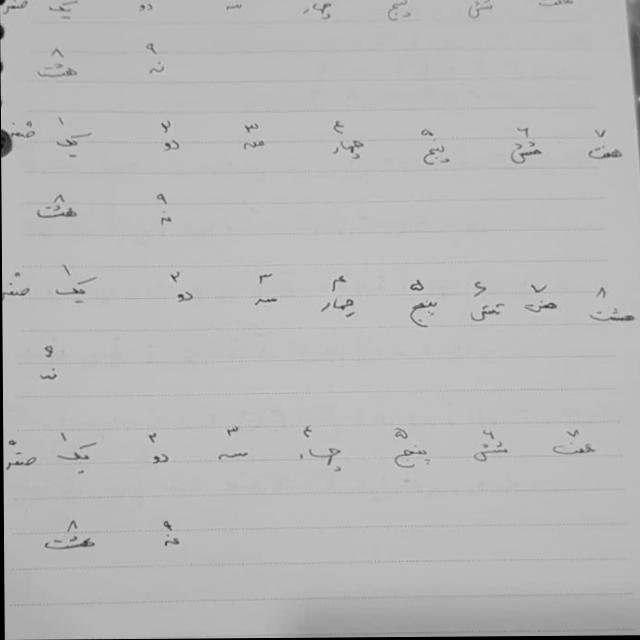 صفر یک دو سه چهار پنج شش هفت
۸ ۹
هشت نه
۰ ۱ ۲ ۳ ۴ ۵ ۶ ۷
صفر یک دو سه چهار پنج شش هفت
۸ ۹
هشت نه
۰ ۱ ۲ ۳ ۴ ۵ ۶ ۷ ۸
صفر یک دو سه چهار پنج شش هفت هشت
۹
نه
۰ ۱ ۲ ۳ ۴ ۵ ۶ ۷
صفر یک دو سه چهار پنج شش هفت
۸ ۹
هشت نه